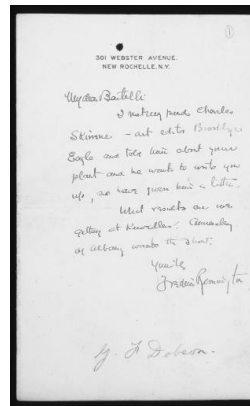 ①
301 WEBSTER AVENUE,
NEW ROCHELLE, N.Y.
My dear Bartelli
I met my friend Charles
Skinner - art editor Brooklyn
Eagle and told him about your
plant and he wants to write you
up, so have given him a letter.
What results are we
getting at Knoedler.
of Albany wants to show.
Yours
Frederic Remington
G. F. Dobson.